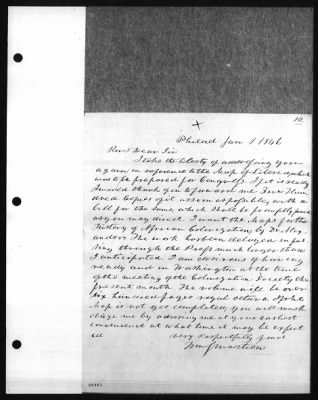 10.
x
Philad Jan 1 1846
Revd Dear Sir
I take the liberty of addressing you
again in reference to the Map of Liberia which
was to be prepared for Congress. If it is ready
I would thank you to forward me Five Hun
dred copies of it as soon as possible, with a
bill for the same which shall be promptly paid
as you may direct. I want the Maps for the
History of African Colonization by Dr. Alex
ander. The work has been delayed in pas
sing through the Press much longer than
I anticipated. I am desirous of having
ready and in Washington at the time
of the meeting of the Colonization Society the
present month. The volume will be over
six hundred pages royal octavo. If the
Map is not yet completed, you will much
oblige me by advising me at your earliest
convenience at what time it may be expect
ed
very respectfully yours
Wm S Martien